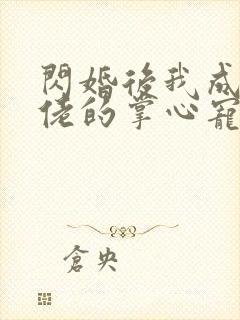 閃婚後我成
佬的掌心寵
倉央